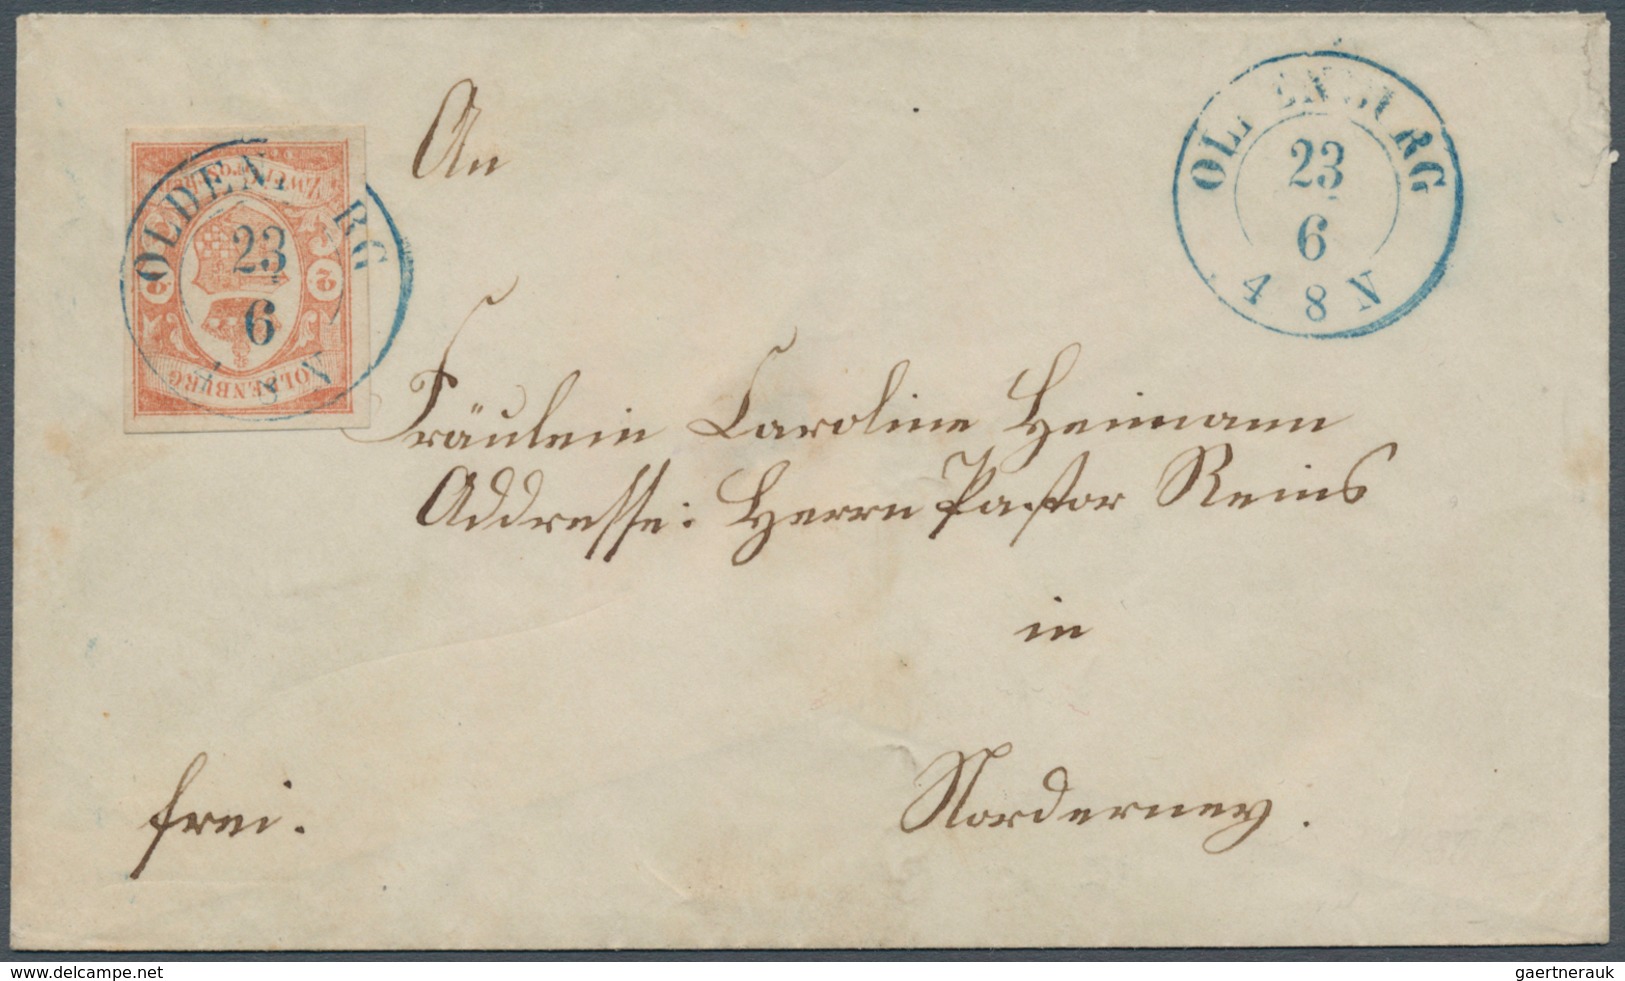 An
OLDENBURG
23
6
4 8 N
OLDENBURG
23
6
8 N
Zwei Groschen
2 2
OLDENBURG
Fräulein Caroline Heimann
Addresse: Herrn Pastor Reins
in
Norderney.
frei.
www.delcampe.net
gaertnerauk